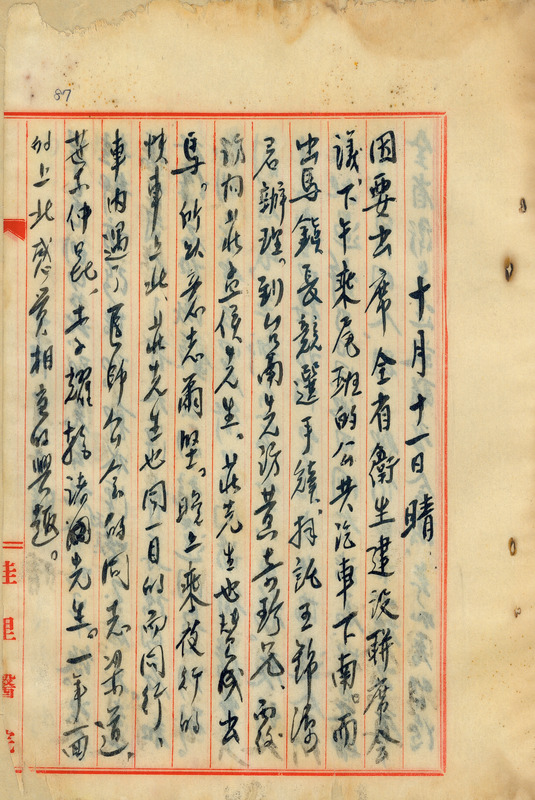 87
十月十一日 晴.
因要出席全省衛生建設聯席会
議、下午乘尾班的公共汽車下南。而
出馬鎮長競選手續、拜託王錦源
君辦理。到台南先訪黃奇珍兄、而後
訪问莊孟侯先生。莊先生也贊成出
馬。所以意志甫堅。晚上乘夜行的
快車上北、莊先生也同一目的而同行、
車内遇了医師公会的同志梁道、
仲昆、李耀乾諸先生。一年一面
的上北感覺相当的興趣。
佳里醫院